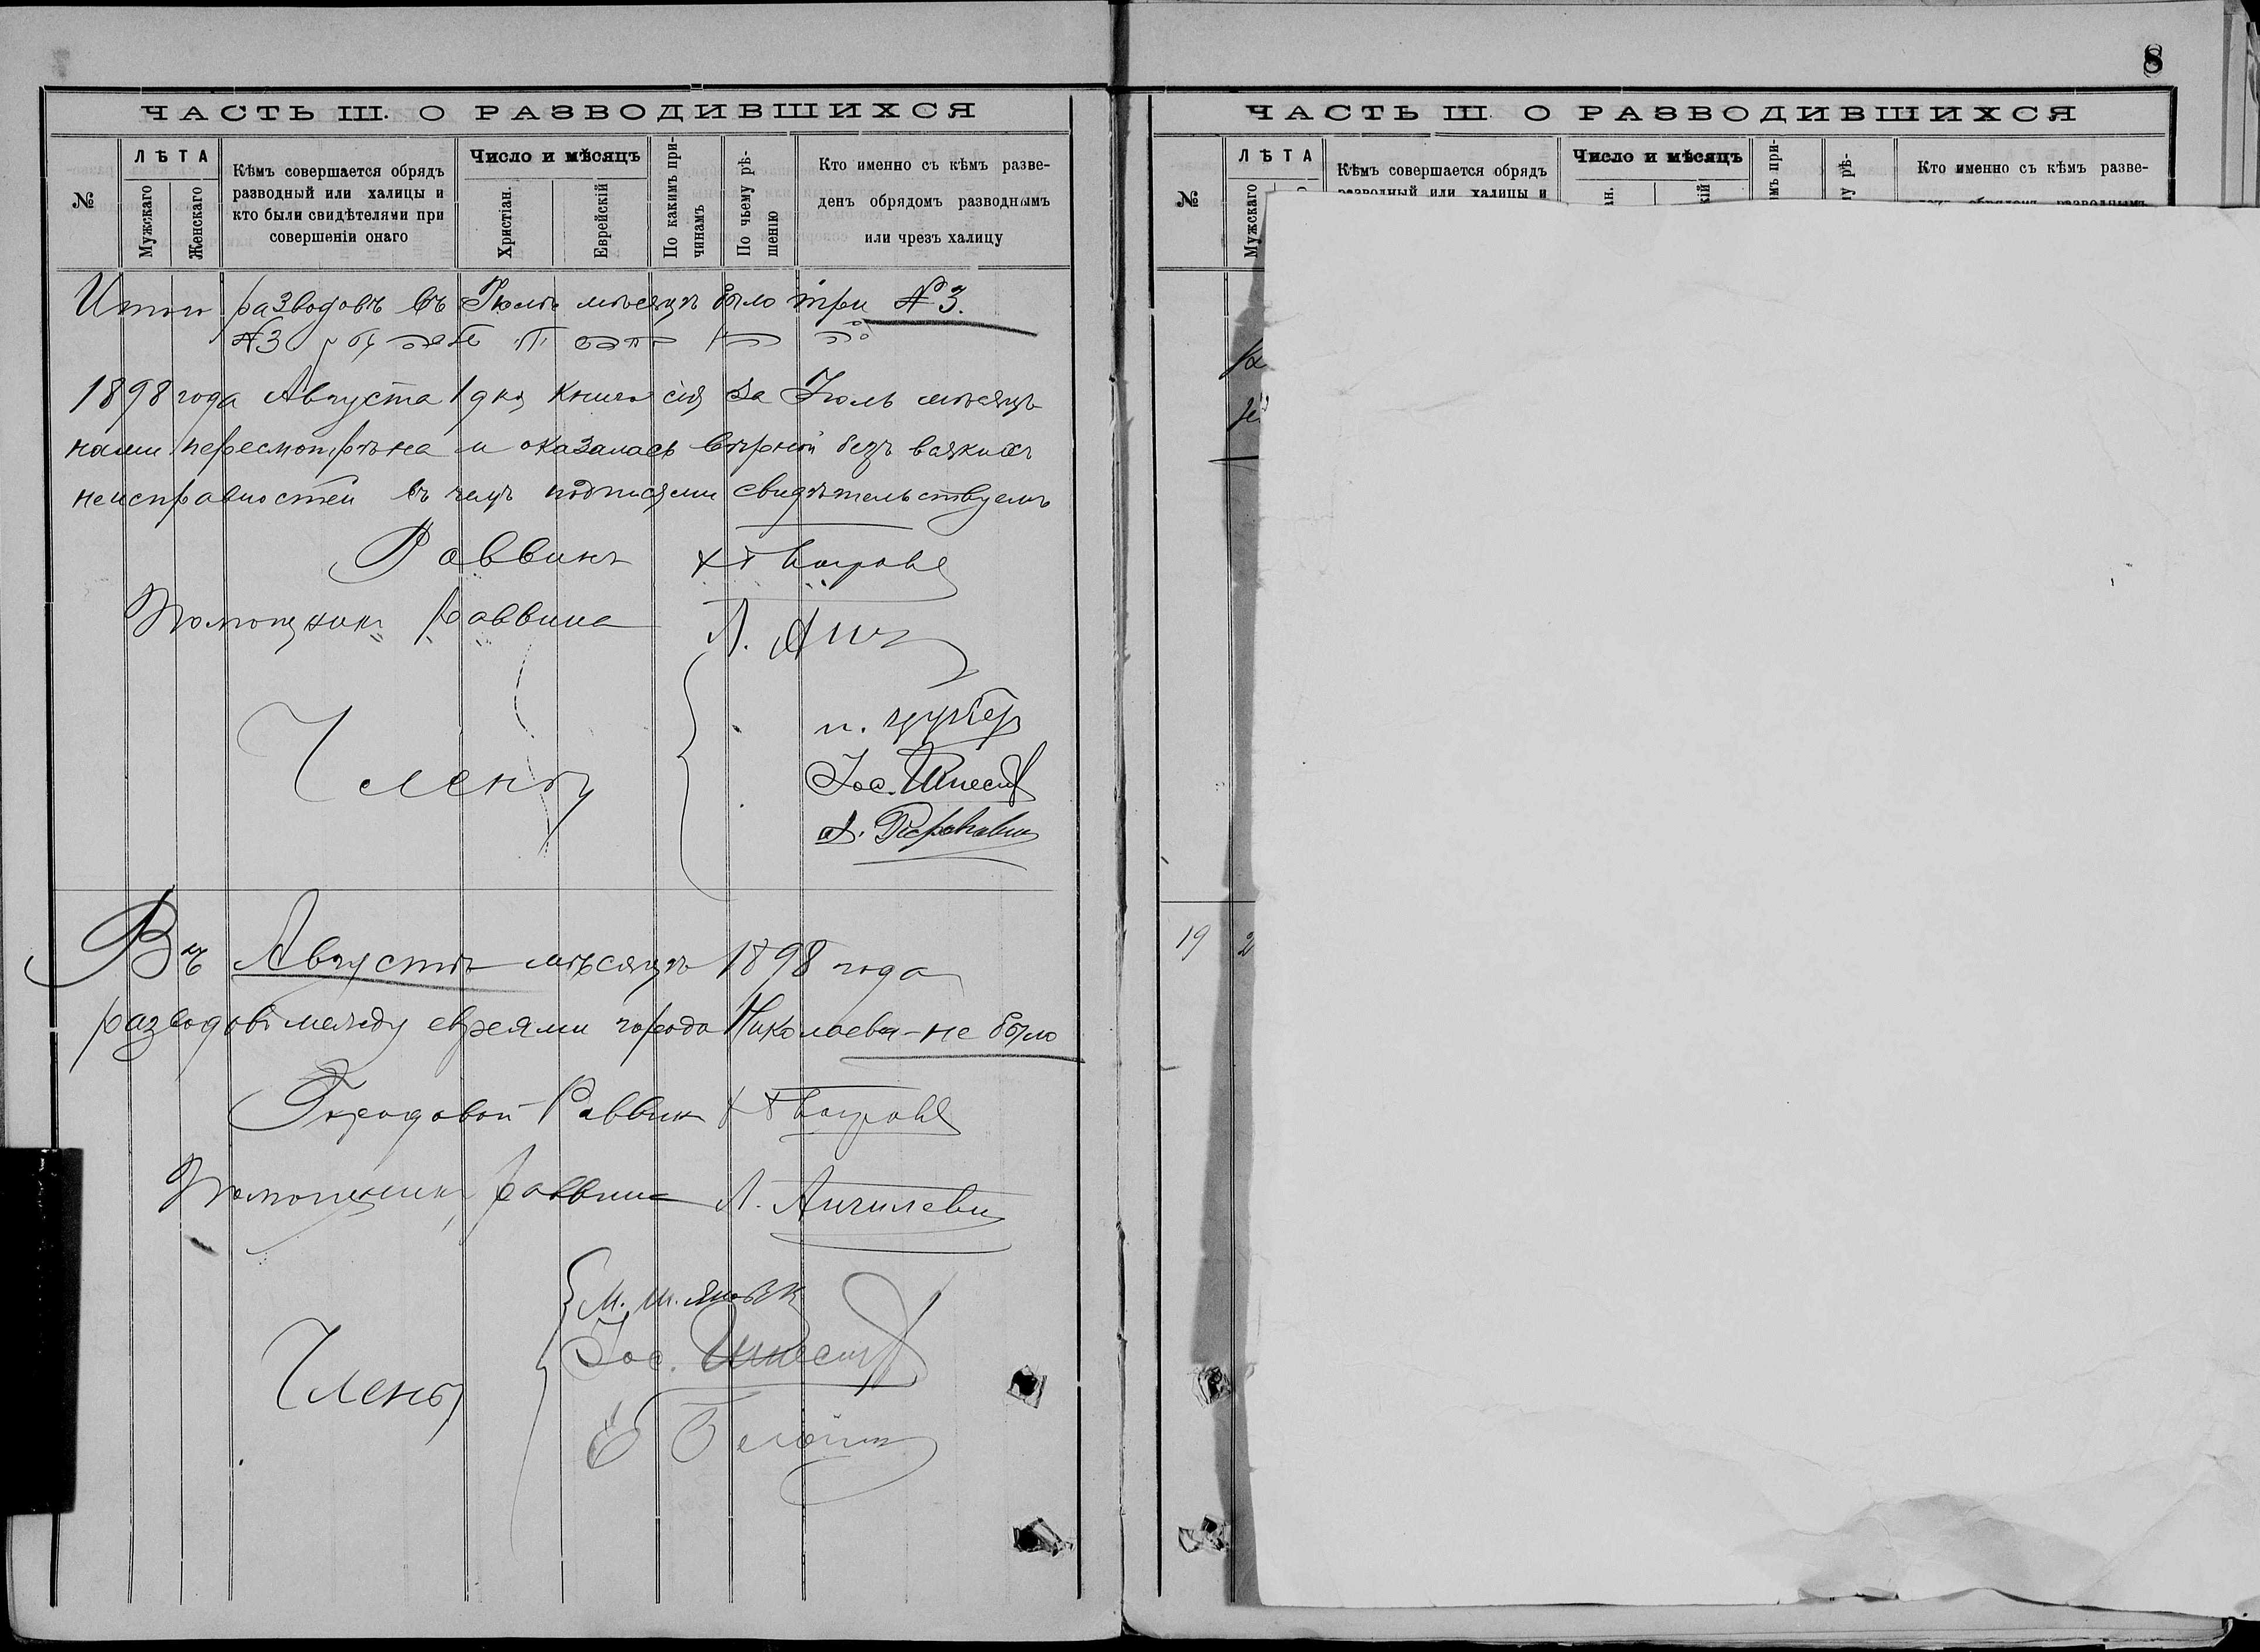 8
ЧАСТЬ III. О РАЗВОДИВШИХСЯ
№
ЛѢТА
Мужскаго
Женскаго
Кѣмъ совершается обрядъ
разводный или халицы и
кто были свидѣтелями при
совершеніи онаго
Число и мѣсяцъ
Христіан.
Еврейскій
По какимъ при-
чинамъ
По чьему рѣ-
шенію
Кто именно съ кѣмъ разве-
денъ обрядомъ разводнымъ
или чрезъ халицу
Итого разводовъ въ Іюлѣ мѣсяцѣ было три №3.
№3
1898 года Августа 1 дня книга сія за Іюль мѣсяцъ
нами пересмотрѣна и оказалась вѣрной безъ всякихъ
неисправностей въ чемъ подписями свидѣтельствуемъ
Раввинъ
Помощникъ раввина Л.
Члены
Іос.
Въ Августѣ мѣсяцѣ 1898 года
разводовъ между евреями города Николаева - не было
Городовой Раввинъ
Помощникъ раввина Л.
Члены
М.
Іос.
ЧАСТЬ III. О РАЗВОДИВШИХСЯ
№
ЛѢТА
Мужскаго
Кѣмъ совершается обрядъ
разводный или халицы и
Число и мѣсяцъ
Кто именно съ кѣмъ разве-
19